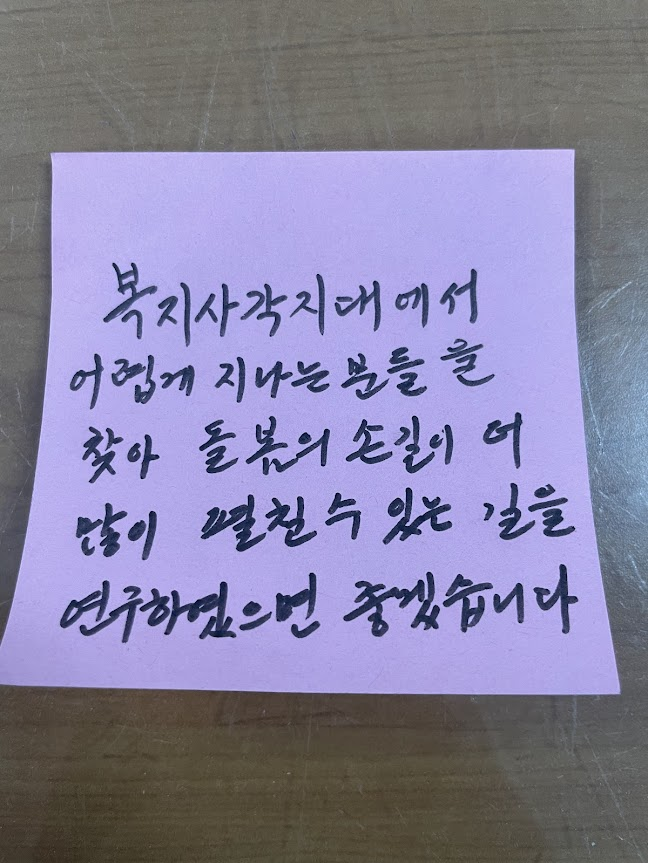 복지사각지대에서
어렵게 지나는 분들을
찾아 돌봄의 손길이 더
많이 펼칠 수 있는 길을
연구하였으면 좋겠습니다